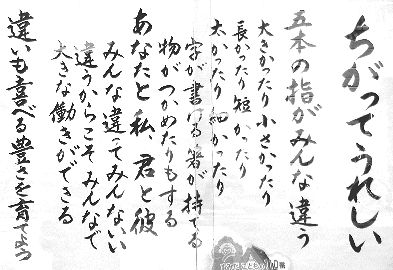 ちがってうれしい
五本の指がみんな違う
大きかったり小さかったり
長かったり短かったり
太かったり細かったり
字が書ける箸が持てる
物がつかめたりもする
あなたと私、君と彼
みんな違ってみんないい
違うからこそみんなで
大きな働きができる
違いも喜べる豊さを育てよう